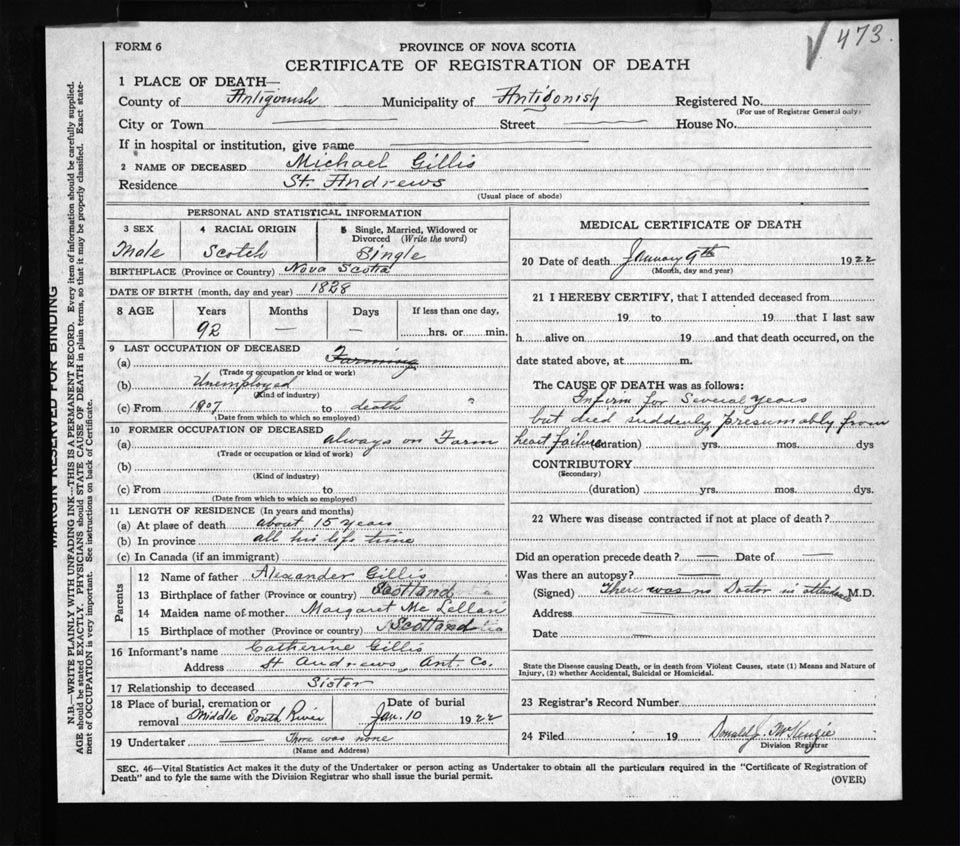 473.
FORM 6
PROVINCE OF NOVA SCOTIA
CERTIFICATE OF REGISTRATION OF DEATH
1 PLACE OF DEATH—
County of Antigonish Municipality of Antigonish Registered No.
(For use of Registrar General only)
City or Town — Street — House No.
If in hospital or institution, give name —
2 NAME OF DECEASED Michael Gillis
Residence St. Andrews
(Usual place of abode)
PERSONAL AND STATISTICAL INFORMATION
3 SEX 4 RACIAL ORIGIN 5 Single, Married, Widowed or
Divorced (Write the word)
Male Scotch Single
BIRTHPLACE (Province or Country) Nova Scotia
DATE OF BIRTH (month, day and year) 1828
8 AGE Years Months Days If less than one day,
92 — — hrs. or min.
9 LAST OCCUPATION OF DECEASED
(a) Farming
(Trade or occupation or kind or work)
(b) Unemployed
(Kind of industry)
(c) From 1907 to death
(Date from which to which so employed)
10 FORMER OCCUPATION OF DECEASED
(a) always on Farm
(Trade or occupation or kind of work)
(b)
(Kind of industry)
(c) From to
(Date from which to which so employed)
11 LENGTH OF RESIDENCE (In years and months)
(a) At place of death about 15 years
(b) In province all his life time
(c) In Canada (if an immigrant)
Parents
12 Name of father Alexander Gillis
13 Birthplace of father (Province or country) Scotland
14 Maiden name of mother Margaret McLellan
15 Birthplace of mother (Province or country) Scotland
16 Informant's name Catherine Gillis
Address St Andrews, Ant. Co.
17 Relationship to deceased Sister
18 Place of burial, cremation or Date of burial
removal Middle South River Jan. 10 1922
19 Undertaker There was none
(Name and Address)
MEDICAL CERTIFICATE OF DEATH
20 Date of death January 9th 1922
(Month, day and year)
21 I HEREBY CERTIFY, that I attended deceased from
19 to 19 that I last saw
h alive on 19 and that death occurred, on the
date stated above, at m.
The CAUSE OF DEATH was as follows:
Infirm for Several years
but died suddenly presumably from
heart failure (duration) yrs. mos. dys
CONTRIBUTORY
(Secondary)
(duration) yrs. mos. dys.
22 Where was disease contracted if not at place of death?
Did an operation precede death? — Date of —
Was there an autopsy? —
(Signed) There was no Doctor in attendance M.D.
Address
Date —
State the Disease causing Death, or in death from Violent Causes, state (1) Means and Nature of
Injury, (2) whether Accidental, Suicidal or Homicidal.
23 Registrar's Record Number
24 Filed 19 Donald J. McKenzie
Division Registrar
SEC. 46—Vital Statistics Act makes it the duty of the Undertaker or person acting as Undertaker to obtain all the particulars required in the "Certificate of Registration of
Death" and to fyle the same with the Division Registrar who shall issue the burial permit.
(OVER)
MARGIN RESERVED FOR BINDING
N.B.—WRITE PLAINLY WITH UNFADING INK—THIS IS A PERMANENT RECORD. Every item of information should be carefully supplied.
AGE should be stated EXACTLY. PHYSICIANS should STATE CAUSE OF DEATH in plain terms, so that it may be properly classified. Exact state-
ment of OCCUPATION is very important. See instructions on back of Certificate.